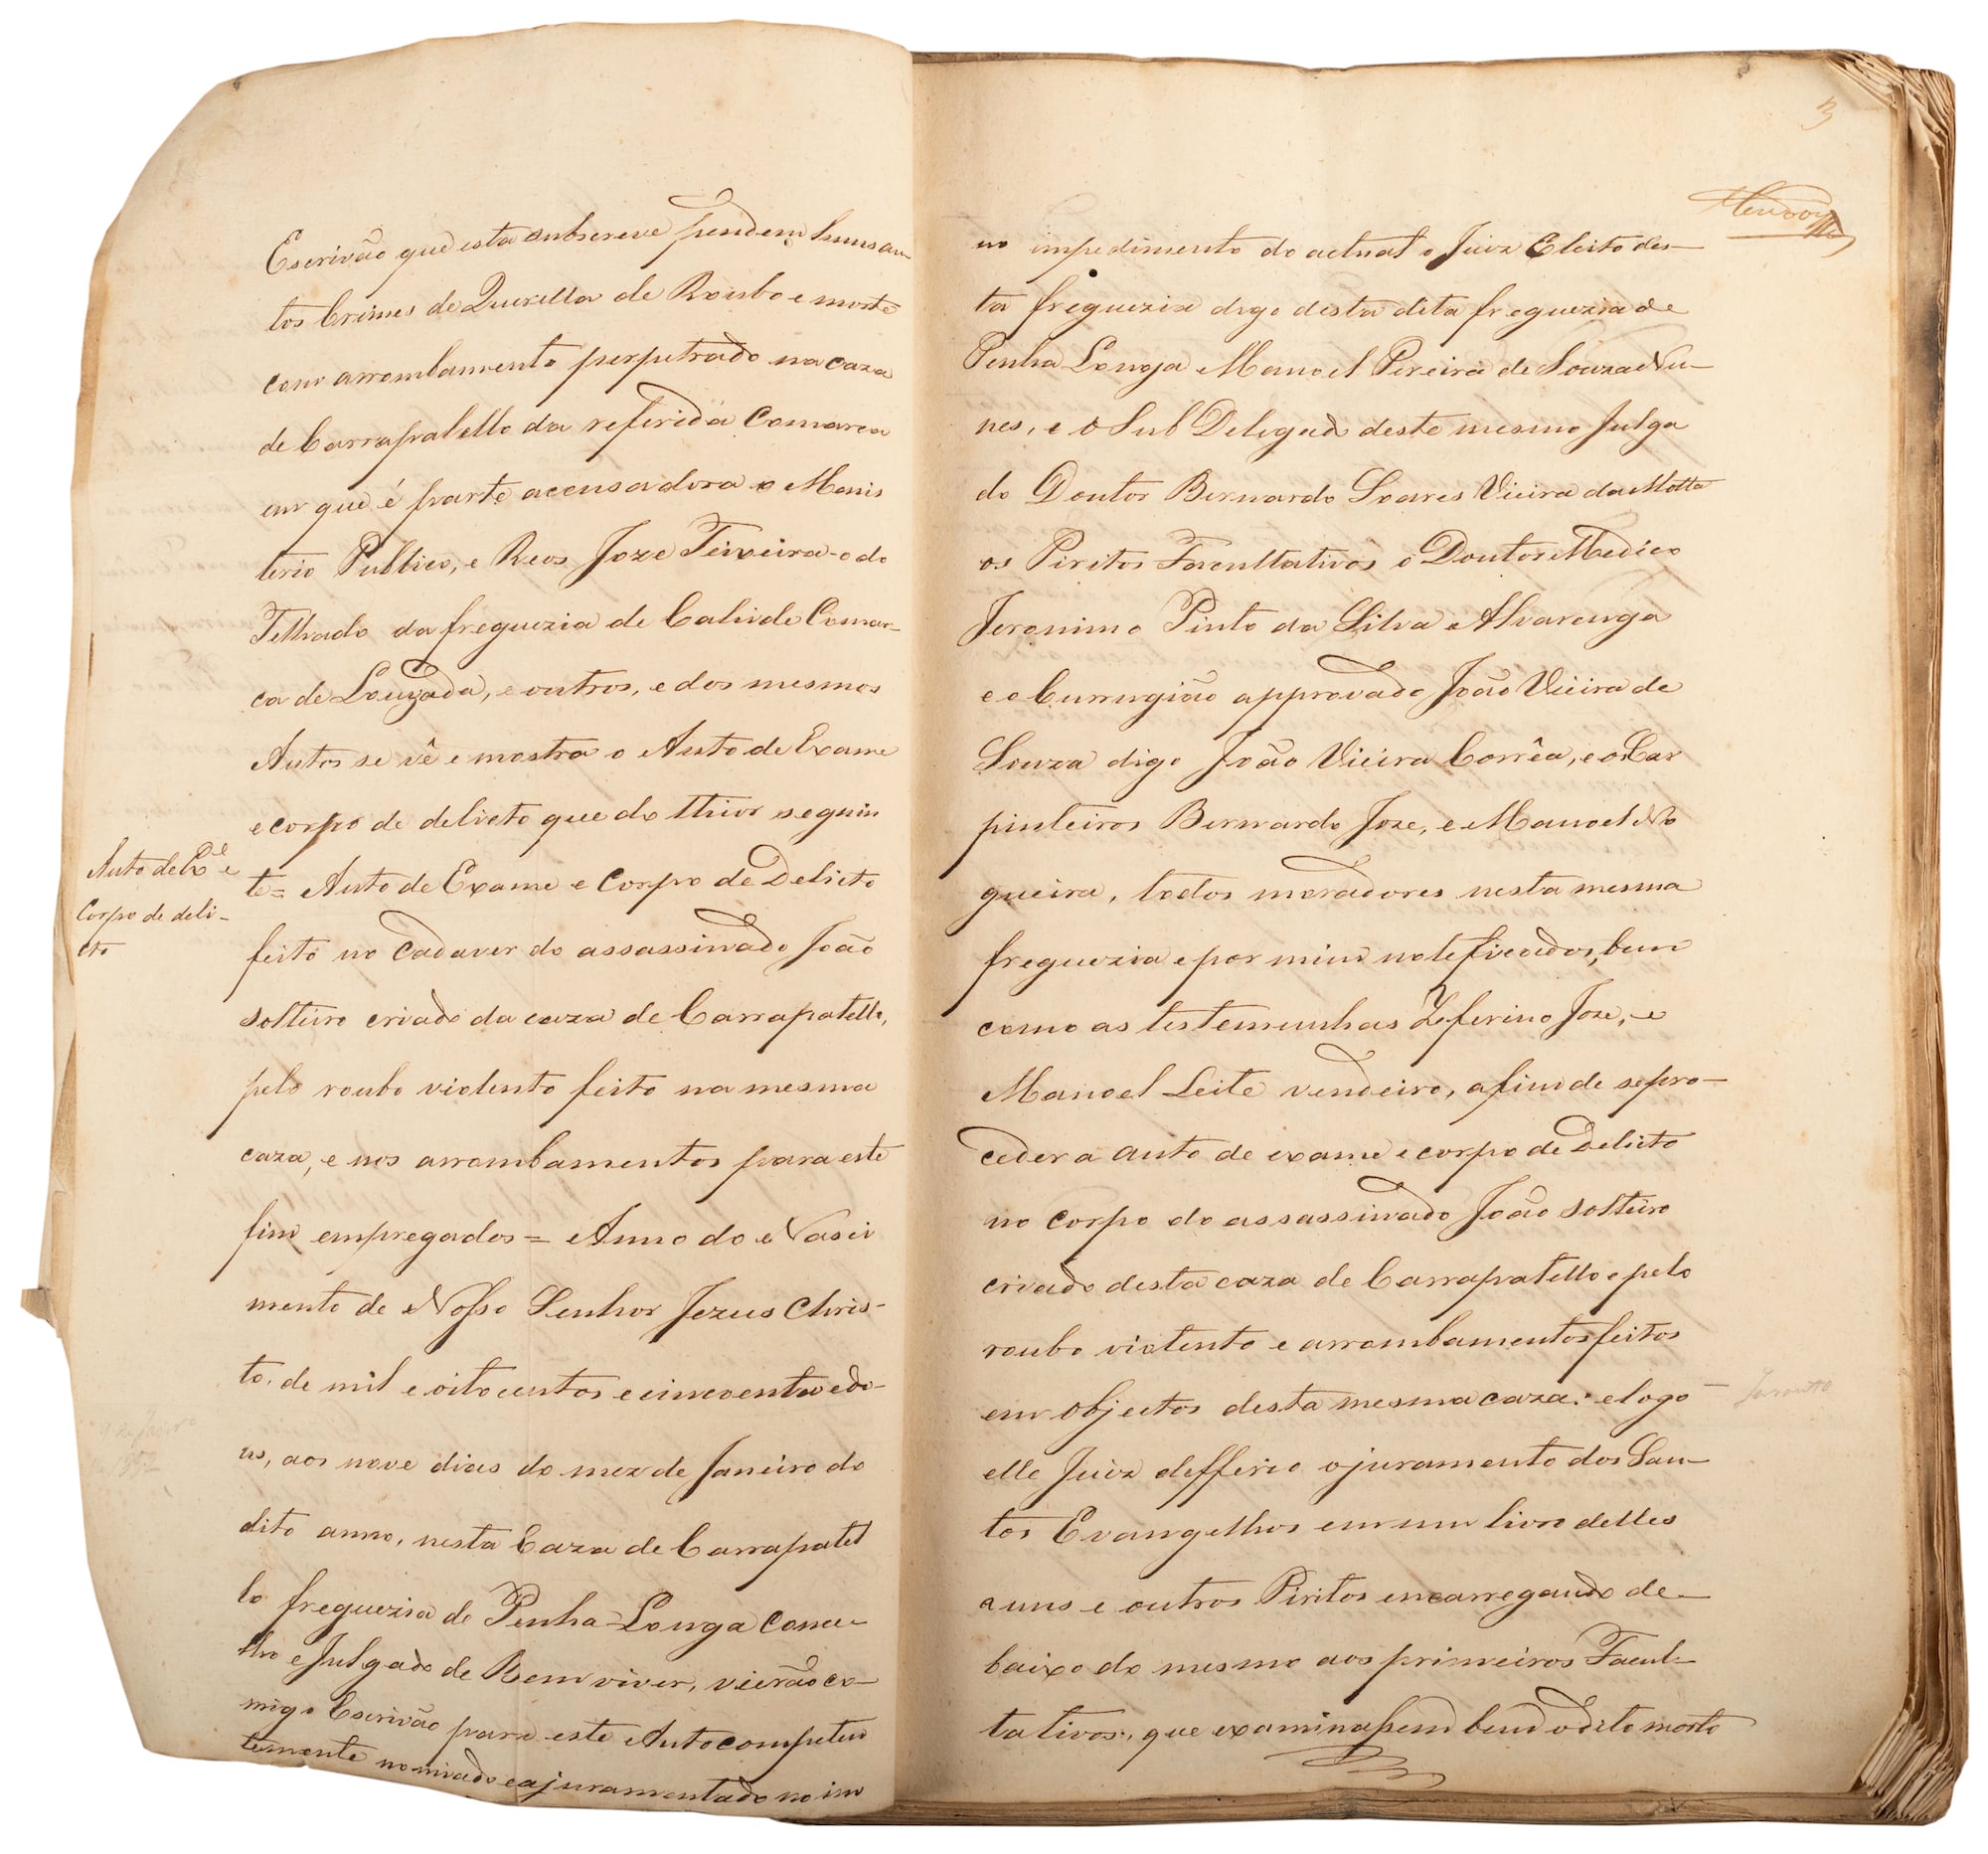 Escrivão que esta subscreve pendem huns au-
tos Crimes de Querella de Roubo e morte
com arrombamento perpetrado na caza
de Carrapatello da referida Comarca
em que é parte accusadora o Menis
terio Publico, e Reos Joze Teixeira o do
Telhado da freguezia de Cahide Comar-
ca de Louzada, e outros, e dos mesmos
Autos se vê e mostra o Auto de Exame
e corpo de delicto que do theor seguin
Auto de Ex.e e
Corpo de deli-
cto
te = Auto de Exame e Corpo de Delicto
feito no Cadaver do assassinado João
solteiro criado da caza de Carrapatello,
pelo roubo violento feito na mesma
caza, e nos arrombamentos para este
fim empregados = Anno do Nasci
mento de Nosso Senhor Jezus Chris-
to, de mil e oito centos e cincoenta e do-
us, aos nove dias do mez de Janeiro do
1852
dito anno, nesta Caza de Carrapatel
lo freguezia de Penha-Longa Conce-
lho e Julgado de Bemviver, vierão co-
migo Escrivão para este Auto competen
temente nomiado e ajuramentado no im
3
no impedimento do actual o Juiz Eleito des-
ta freguezia digo desta dita freguezia de
Penha Longa Manoel Pereira de Souza Nu-
nes, e o Sub Delegado deste mesmo Julga
do Doutor Bernardo Soares Vieira da Motta
os Piritos Facultativos o Doutor Medico
Jeronimo Pinto da Silva e Alvarenga
e o Currugião approvado João Vieira de
Souza digo João Vieira Corrêa, e os Car
pinteiros Bernardo Joze, e Manoel No
gueira, todos moradores nesta mesma
freguezia e por mim noteficados, bem
como as testemunhas Zeferino Joze, e
Manoel Leite vendeiro, afim de se pro-
ceder a auto de exame e corpo de Delicto
no corpo do assassinado João solteiro
criado desta caza de Carrapatello e pelo
roubo violento e arrombamentos feitos
em objectos desta mesma caza: e logo
elle Juiz defferio o juramento dos San-
tos Evangelhos em um livro delles
a uns e outros Piritos encarregando de-
baixo do mesmo aos primeiros Facul-
tativos, que examinassem bem o dito morto